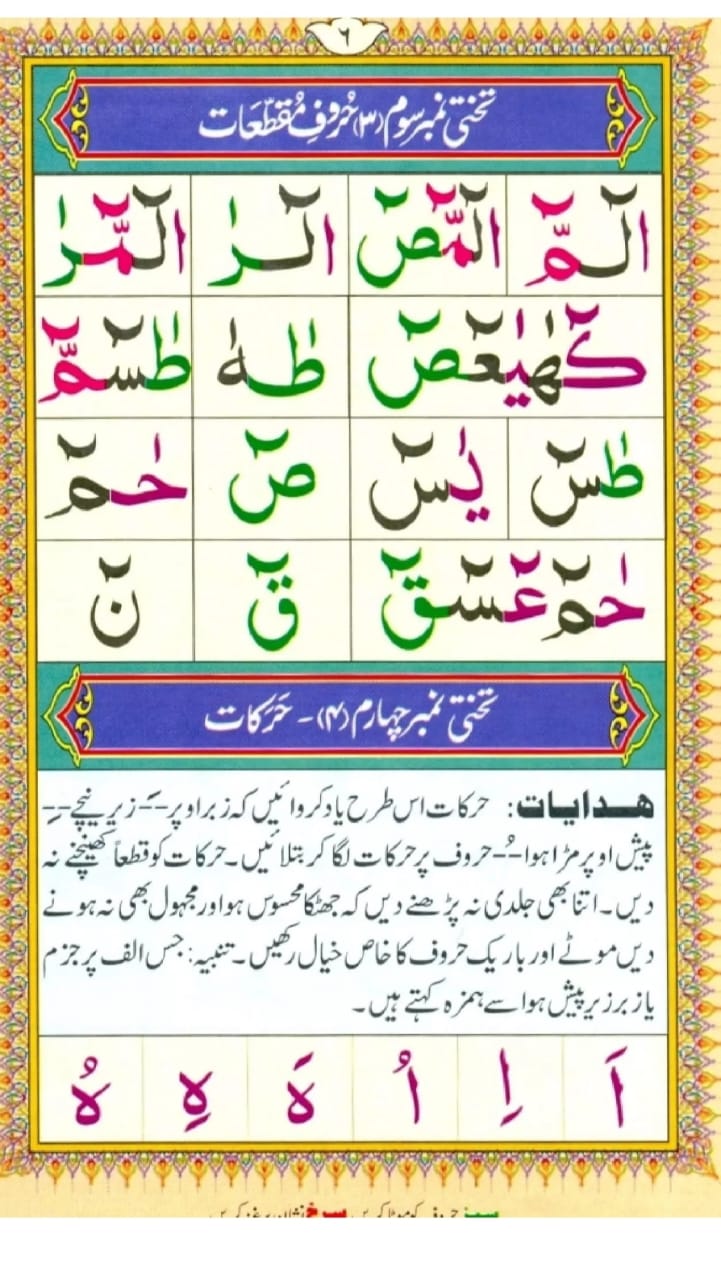 ٦
تختی نمبر سوم (۳) حُروفِ مُقطّعَات
الٓمّٓ الٓمّٓصٓ الٓـرٰ الٓمّٓرٰ
کٓھٰیٰعٓصٓ طٰہٰ طٰسٓمّٓ
طٰسٓ یٰسٓ صٓ حٰمٓ
حٰمٓ عٓسٓقٓ قٓ نٓ
تختی نمبر چہارم (۴) - حَرَکات
ھدایات: حرکات اس طرح یاد کروائیں کہ زبر اوپر -َ- زیر نیچے -ِ-
پیش اوپر مڑا ہوا -ُ- حروف پر حرکات لگا کر بتلائیں۔ حرکات کو قطعاً کھینچنے نہ
دیں۔ اتنا بھی جلدی نہ پڑھنے دیں کہ جھٹکا محسوس ہو اور مجہول بھی نہ ہونے
دیں موٹے اور باریک حروف کا خاص خیال رکھیں۔ تنبیہ: جس الف پر جزم
یا زبر زیر پیش ہو اسے ہمزہ کہتے ہیں۔
اَ اِ اُ ہَ ہِ ہُ